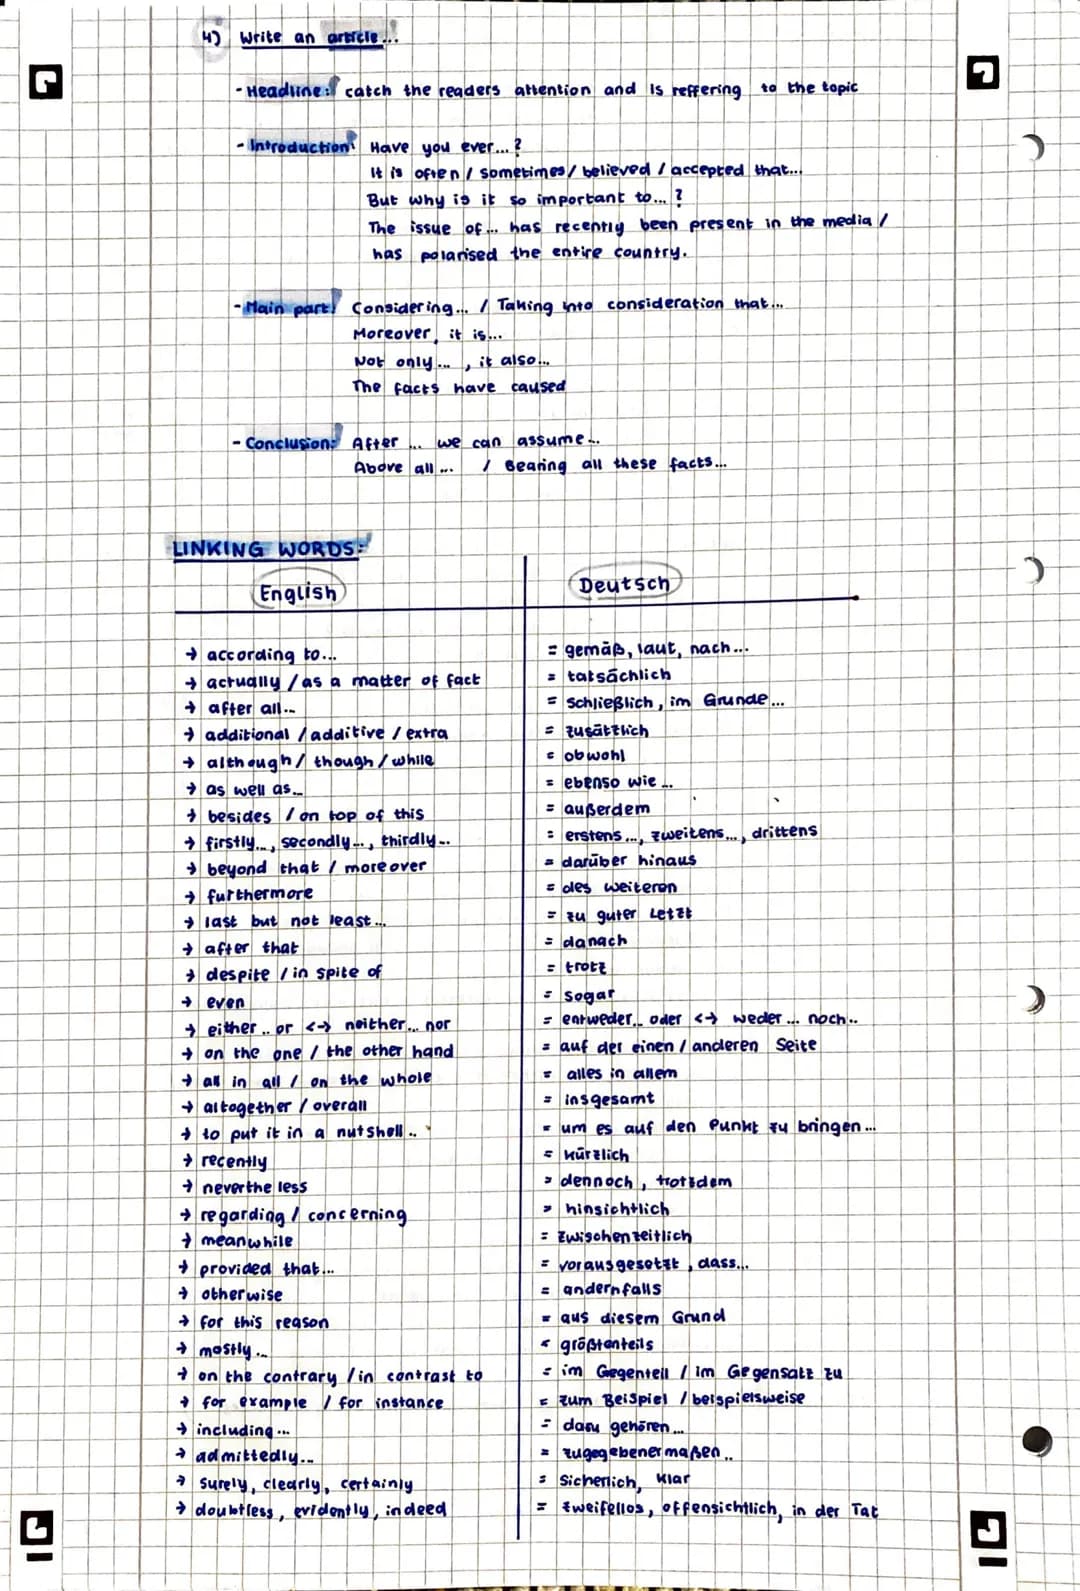 4) Write an article...
- Headline: catch the readers attention and is reffering to the topic
- Introduction: Have you ever...?
It is often / sometimes / believed / accepted that...
But why is it so important to...?
The issue of... has recently been present in the media /
has polarised the entire country.
- Main part: Considering... / Taking into consideration that...
Moreover, it is...
Not only..., it also...
The facts have caused
- Conclusion: After ... we can assume...
Above all... / Bearing all these facts...
LINKING WORDS:
English Deutsch
→ according to... = gemäß, laut, nach...
→ actually / as a matter of fact = tatsächlich
→ after all... = schließlich, im Grunde...
→ additional / additive / extra = zusätzlich
→ although / though / while = obwohl
→ as well as... = ebenso wie...
→ besides / on top of this = außerdem
→ firstly..., secondly..., thirdly... = erstens..., zweitens..., drittens
→ beyond that / moreover = darüber hinaus
→ furthermore = des weiteren
→ last but not least... = zu guter Letzt
→ after that = danach
→ despite / in spite of = trotz
→ even = sogar
→ either.. or <-> neither... nor = entweder.. oder <-> weder... noch..
→ on the one / the other hand = auf der einen / anderen Seite
→ all in all / on the whole = alles in allem
→ altogether / overall = insgesamt
→ to put it in a nutshell.. = um es auf den Punkt zu bringen...
→ recently = kürzlich
→ nevertheless = dennoch, trotzdem
→ regarding / concerning = hinsichtlich
→ meanwhile = zwischenzeitlich
→ provided that... = vorausgesetzt, dass...
→ otherwise = andernfalls
→ for this reason = aus diesem Grund
→ mostly... = größtenteils
→ on the contrary / in contrast to = im Gegenteil / im Gegensatz zu
→ for example / for instance = zum Beispiel / beispielsweise
→ including... = dazu gehören...
→ admittedly... = zugegebenermaßen..
→ surely, clearly, certainly = sicherlich, klar
→ doubtless, evidently, indeed = zweifellos, offensichtlich, in der Tat